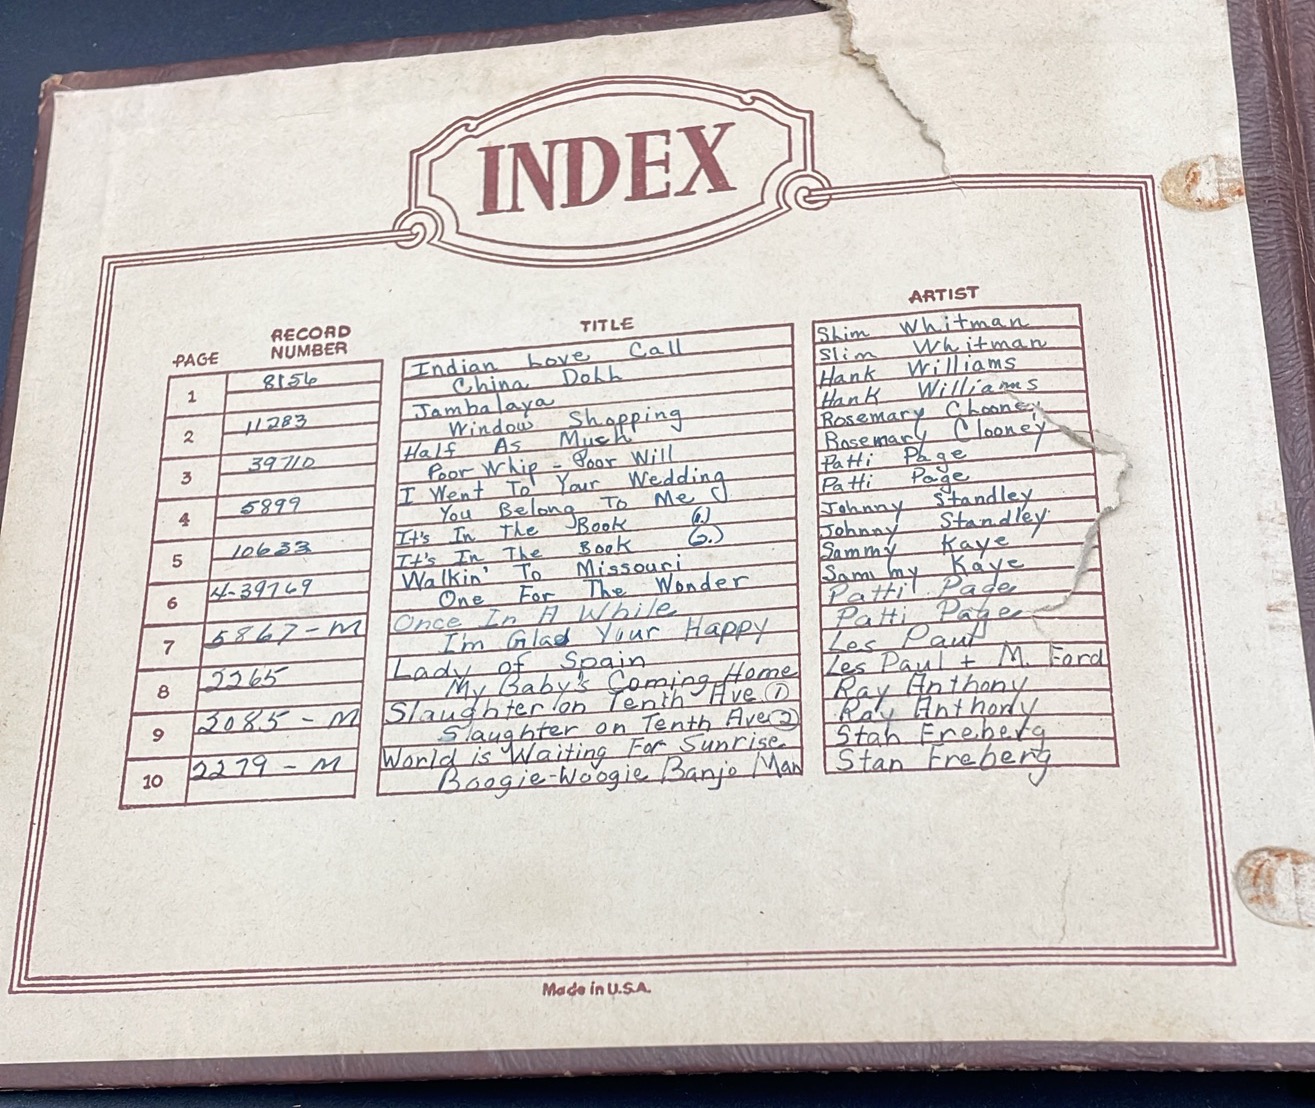 INDEX
PAGE RECORD NUMBER TITLE ARTIST
1 8156 Indian Love Call Slim Whitman
China Doll Slim Whitman
2 11283 Jambalaya Hank Williams
Window Shopping Hank Williams
3 39710 Half As Much Rosemary Clooney
Poor Whip - Poor Will Rosemary Clooney
4 5899 I Went To Your Wedding Patti Page
You Belong To Me Patti Page
5 10633 It's In The Book (1.) Johnny Standley
It's In The Book (2.) Johnny Standley
6 4-39769 Walkin' To Missouri Sammy Kaye
One For The Wonder Sammy Kaye
7 5867-M Once In A While Patti Page
I'm Glad Your Happy Patti Page
8 2265 Lady of Spain Les Paul
My Baby's Coming Home Les Paul + M. Ford
9 2085-M Slaughter on Tenth Ave ① Ray Anthony
Slaughter on Tenth Ave ② Ray Anthony
10 2279-M World is Waiting For Sunrise Stan Freberg
Boogie-Woogie Banjo Man Stan Freberg
Made in U.S.A.